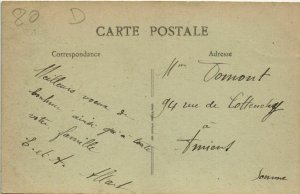 80 D
CARTE POSTALE
Correspondance
Adresse
Meilleurs voeux de
bonheur ainsi qu'a toute
votre famille
E. et A. Allart
Mme Domont
94 rue de Cottenchy
à
Amiens
Somme